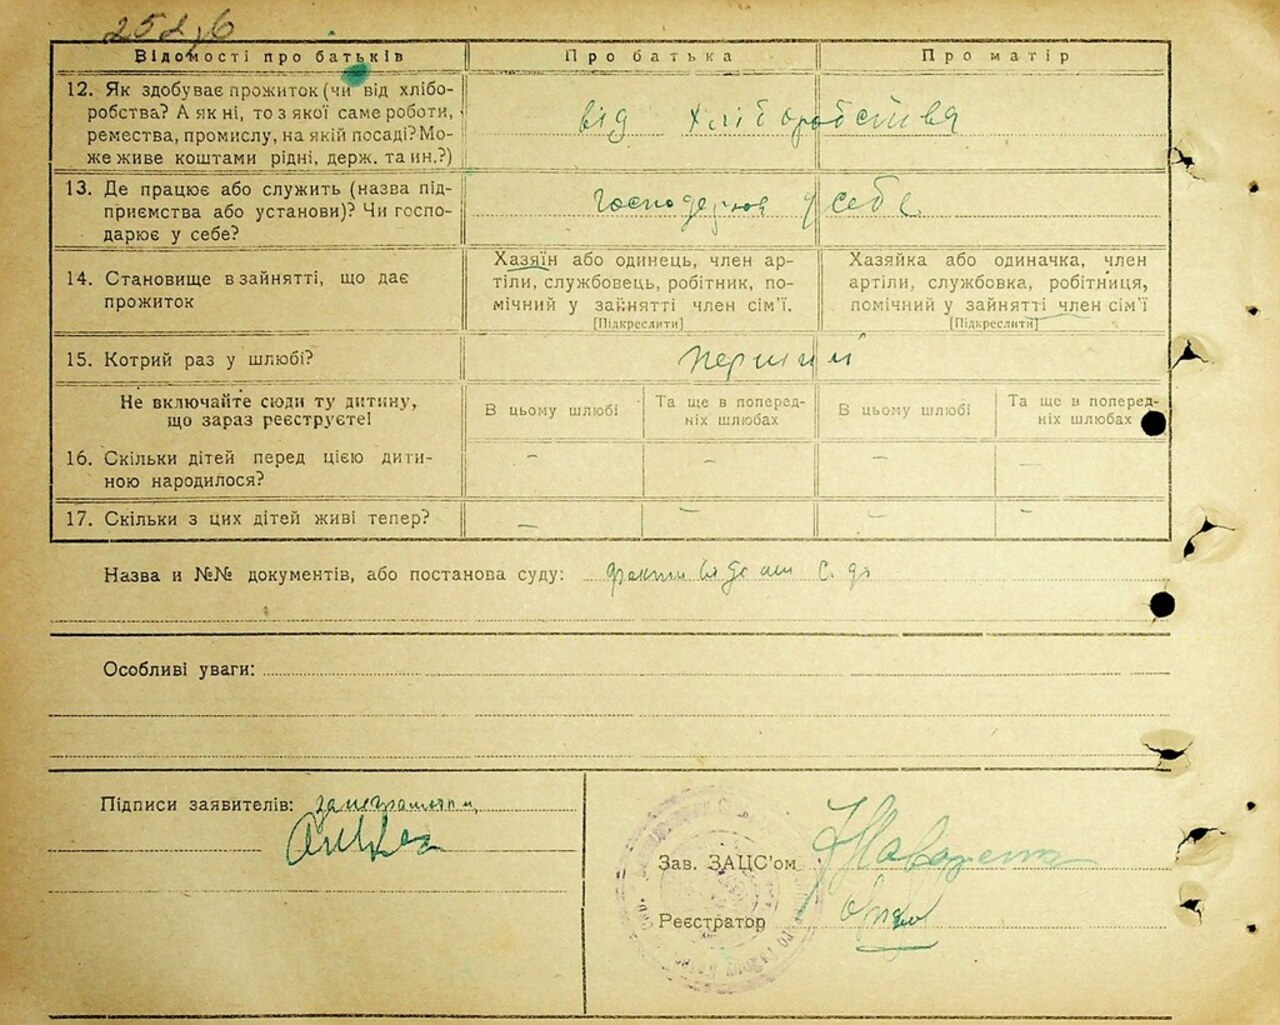 Відомості про батьків Про батька Про матір
12. Як здобуває прожиток (чи від хлібо-
робства? А як ні, то з якої саме роботи,
ремества, промислу, на якій посаді? Мо-
же живе коштами рідні, держ. та ин.?)
від хліборобства
13. Де працює або служить (назва під-
приємства або установи)? Чи госпо-
дарює у себе?
у себе
14. Становище в зайнятті, що дає
прожиток
Хазяїн або одинець, член ар-
тіли, службовець, робітник, по-
мічний у зайнятті член сім'ї.
[Підкреслити]
Хазяйка або одиначка, член
артіли, службовка, робітниця,
помічний у зайнятті член сім'ї
[Підкреслити]
15. Котрий раз у шлюбі?
перший
Не включайте сюди ту дитину,
що зараз реєструєте!
В цьому шлюбі
Та ще в поперед-
ніх шлюбах
В цьому шлюбі
Та ще в поперед-
ніх шлюбах
16. Скільки дітей перед цією дити-
ною народилося?
– – – –
17. Скільки з цих дітей живі тепер?
– – – –
Назва и №№ документів, або постанова суду:
Особливі уваги:
Підписи заявителів:
Зав. ЗАЦС'ом
Реєстратор